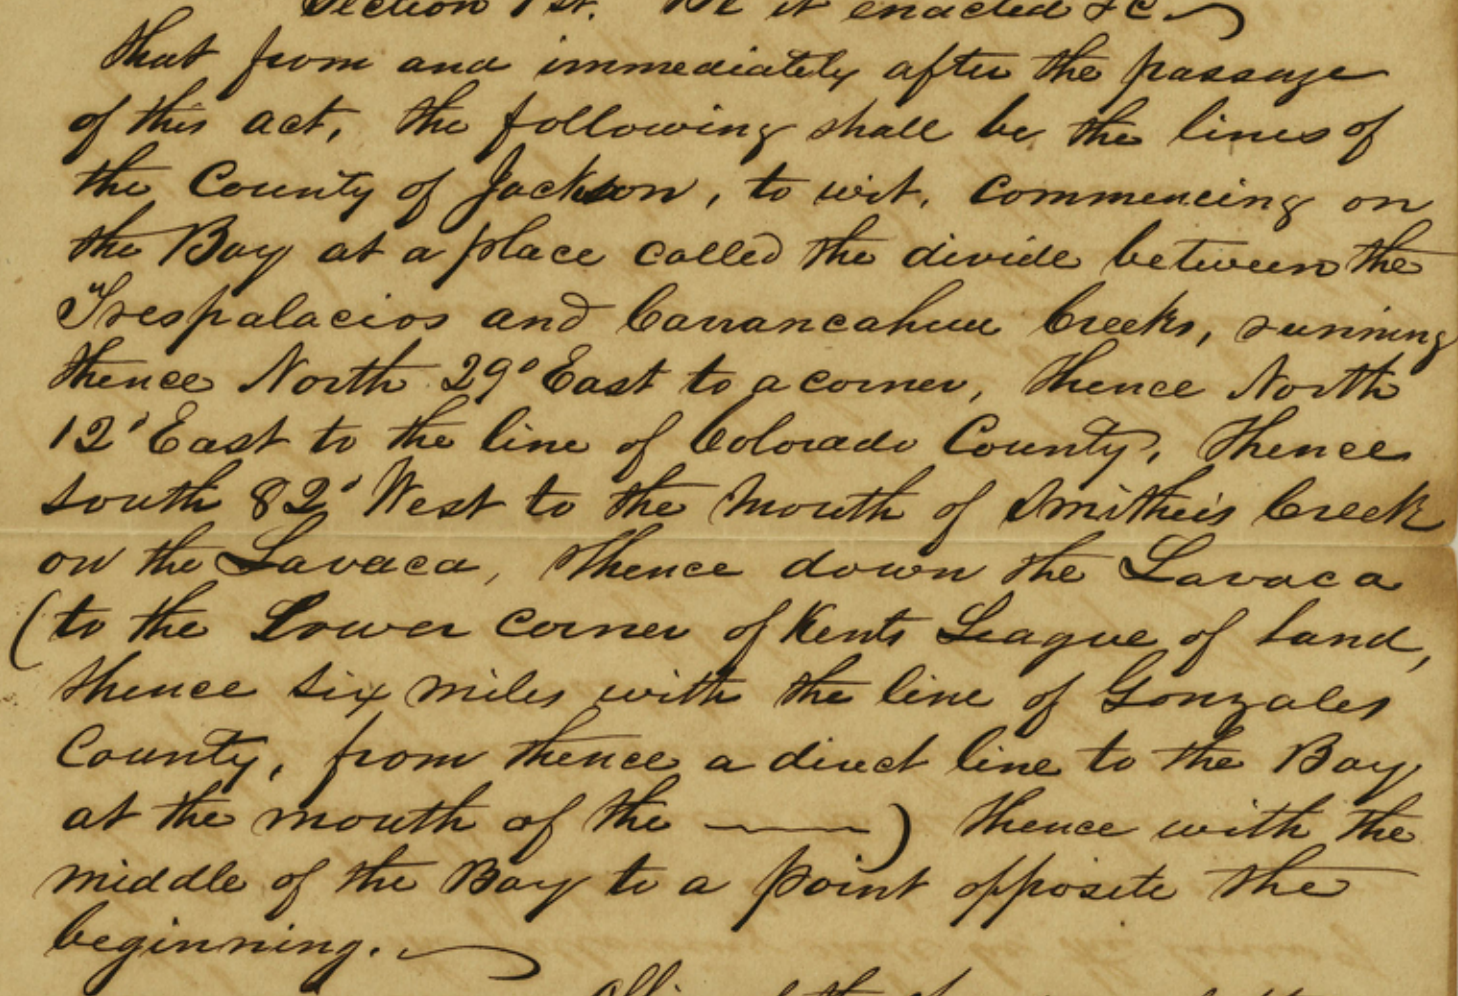 Section 1st. Be it enacted &c.
that from and immediately after the passage
of this act, the following shall be the lines of
the County of Jackson, to wit, Commencing on
the Bay at a place called the divide between the
Trespalacios and Carrancahua Creeks, running
thence North 29° East to a corner, thence North
12° East to the line of Colorado County, thence
South 82° West to the mouth of Smithers Creek
on the Lavaca, thence down the Lavaca
(to the Lower corner of Kents League of land,
thence six miles with the line of Gonzales
County, from thence a direct line to the Bay
at the mouth of the ———) thence with the
middle of the Bay to a point opposite the
beginning.